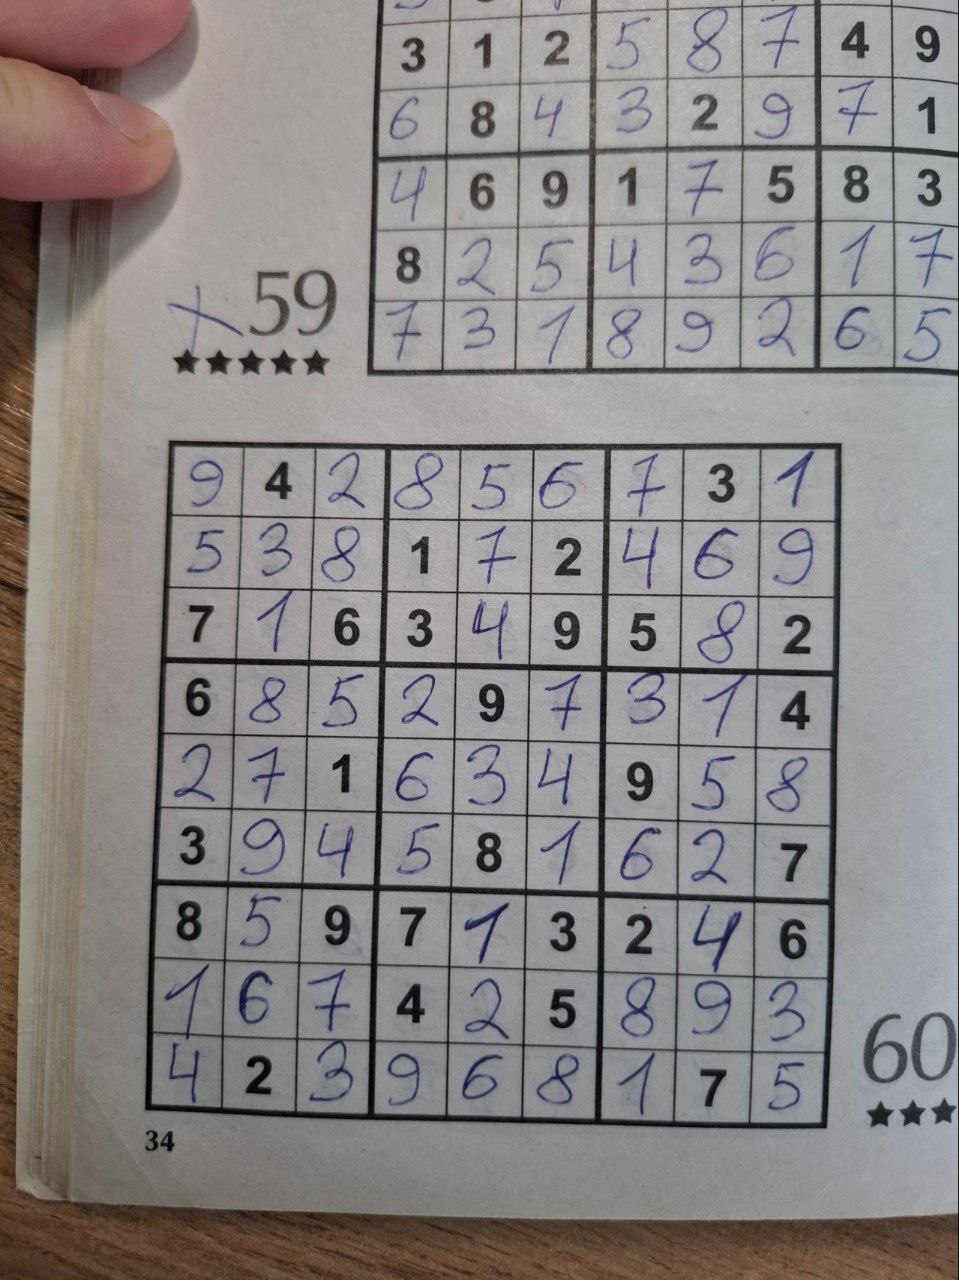 3 1 2 5 8 7 4 9
6 8 4 3 2 9 7 1
4 6 9 1 7 5 8 3
8 2 5 4 3 6 1 7
7 3 1 8 9 2 6 5
59
★★★★★
9 4 2 8 5 6 7 3 1
5 3 8 1 7 2 4 6 9
7 1 6 3 4 9 5 8 2
6 8 5 2 9 7 3 1 4
2 7 1 6 3 4 9 5 8
3 9 4 5 8 1 6 2 7
8 5 9 7 1 3 2 4 6
1 6 7 4 2 5 8 9 3
4 2 3 9 6 8 1 7 5
60
★★★
34